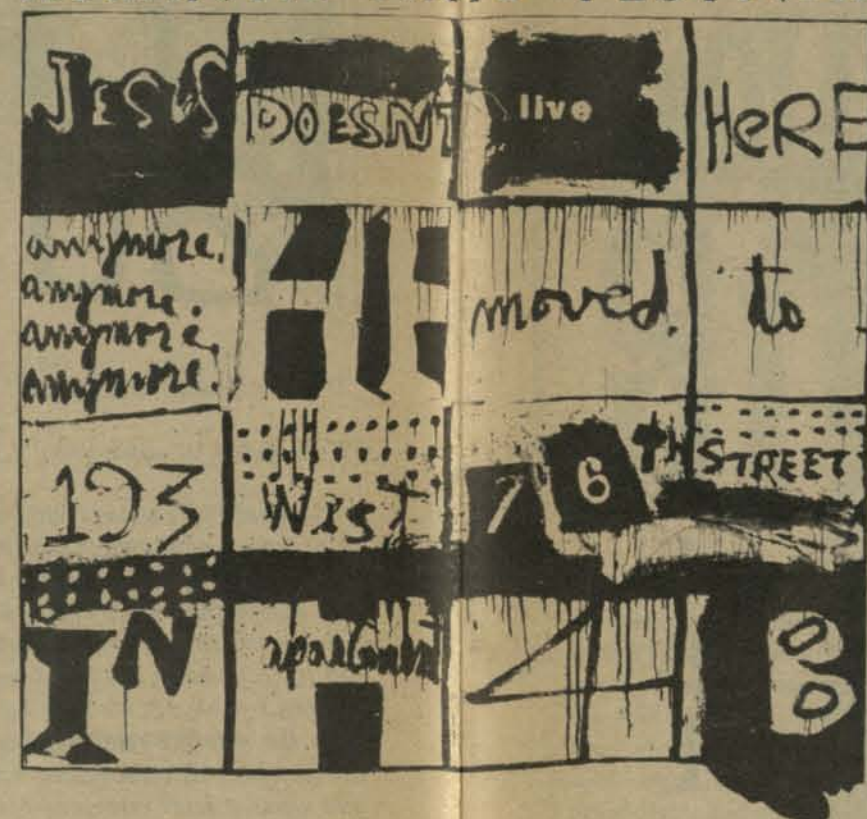 JESUS DOESNT live HeRE
anymore. HE moved. to
anymore.
anymore.
anymore.
193 WEST 76th STREET
IN apartment 4 B